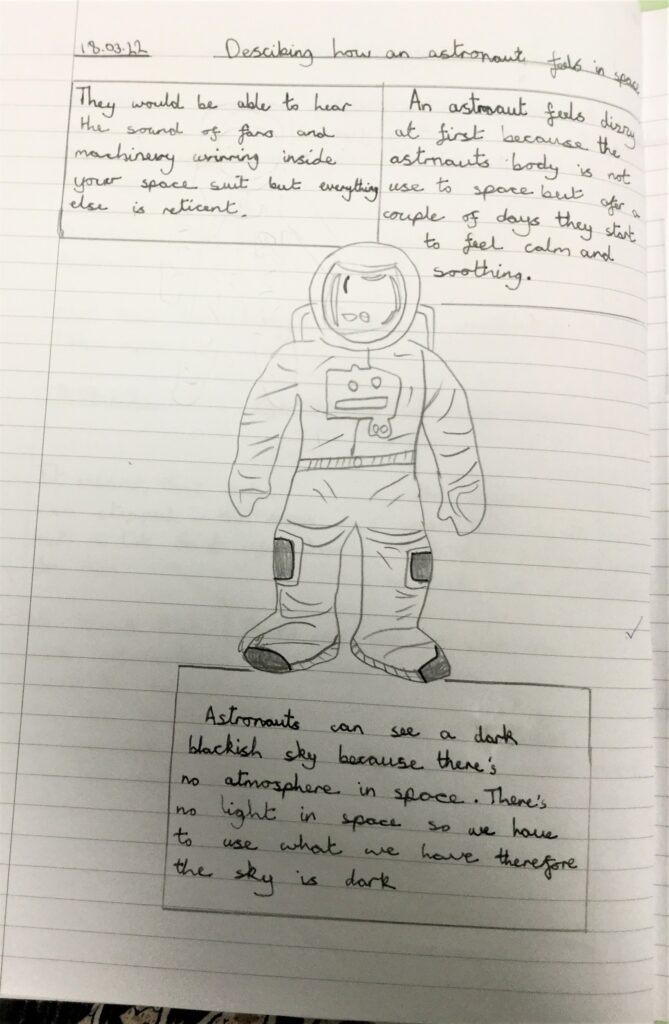 18.03.22
Descibing how an astronaut feels in space
They would be able to hear
the sound of fans and
machinery wrinning inside
your space suit but everything
else is reticent.
An astronaut feels dizzy
at first because the
astrnauts body is not
use to space but after a
couple of days they start
to feel calm and
soothing.
Astronauts can see a dark
blackish sky because there's
no atmosphere in space. There's
no light in space so we have
to use what we have therefore
the sky is dark